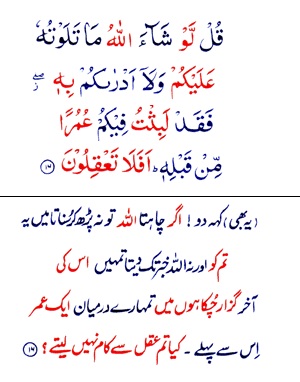 قُلْ لَّوْ شَآءَ اللّٰهُ مَا تَلَوْتُهٗ
عَلَيْكُمْ وَلَآ اَدْرٰىكُمْ بِهٖ ۖ ز
فَقَدْ لَبِثْتُ فِيْكُمْ عُمُرًا
مِّنْ قَبْلِهٖ ؕ اَفَلَا تَعْقِلُوْنَ ﴿۱۶﴾
(یہ بھی) کہہ دو! اگر چاہتا اللہ تو نہ پڑھ کر سُناتا میں یہ
تم کو اور نہ اللہ خبر تک دیتا تمہیں اس کی
آخر گزار چُکا ہوں میں تمہارے درمیان ایک عمر
اِس سے پہلے ۔ کیا تم عقل سے کام نہیں لیتے؟ ﴿۱۶﴾